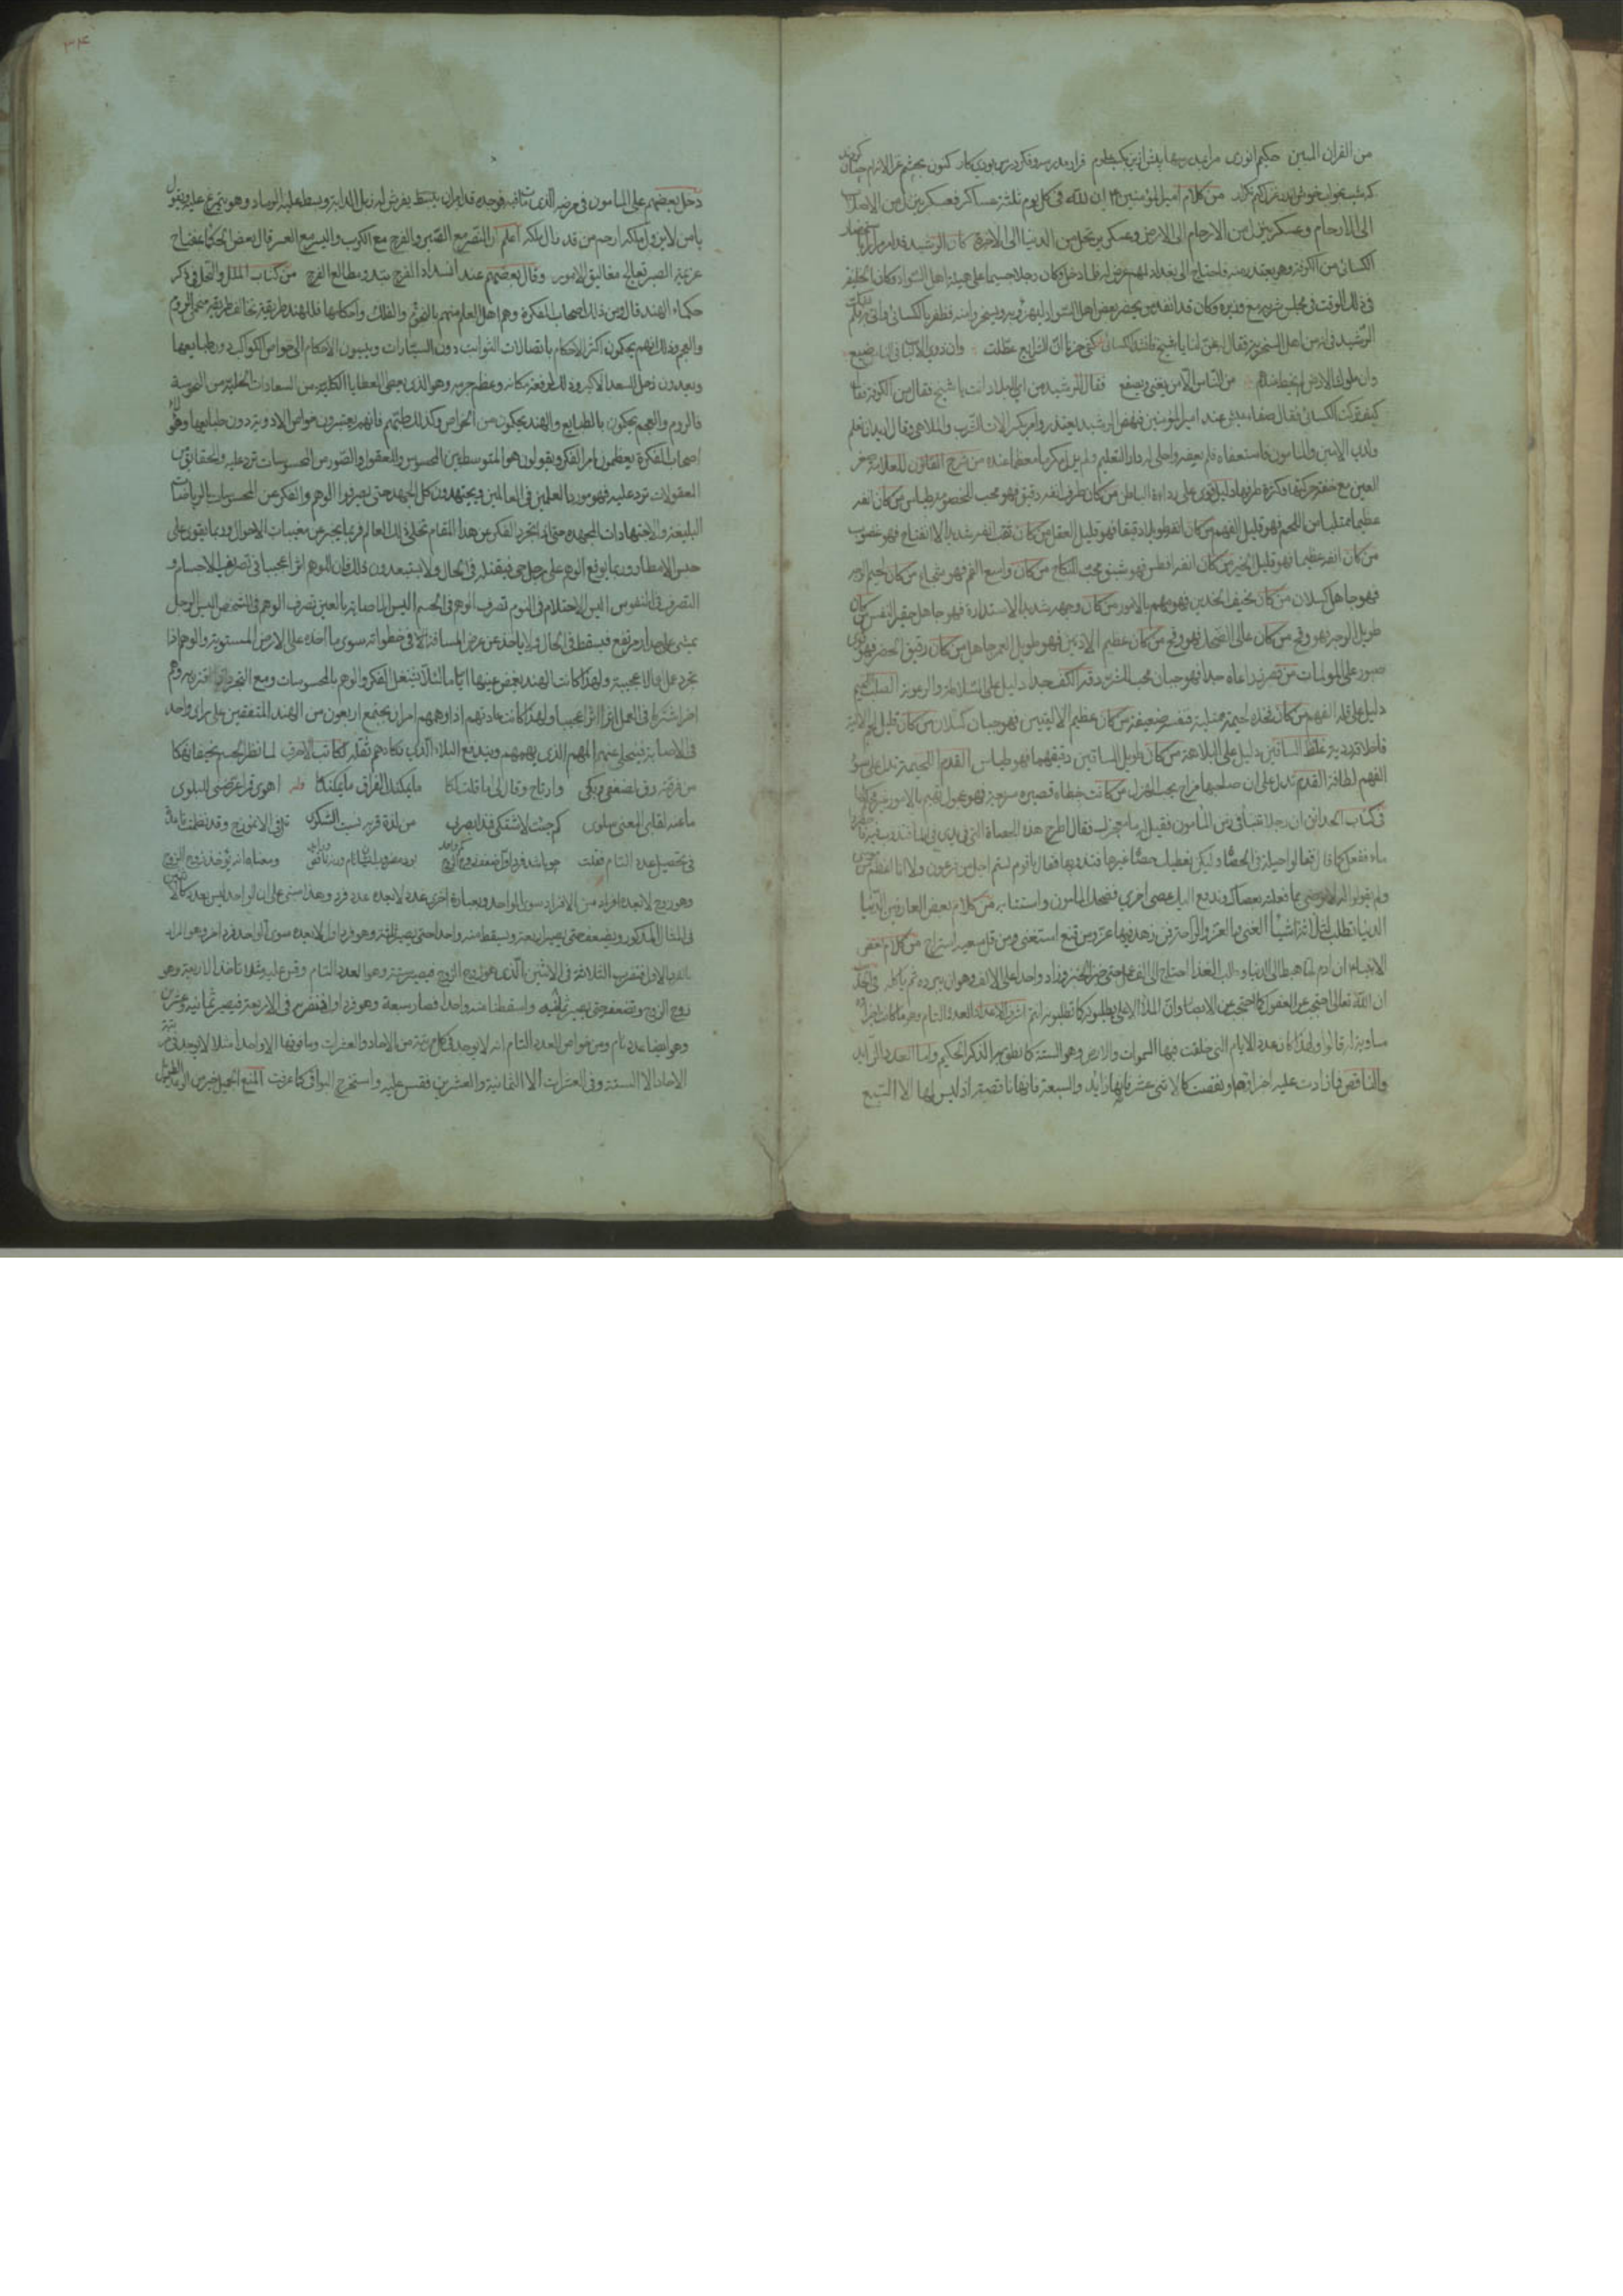 من القران المبين حكيم انورى مرا
كه شب بخواب من كلام امير المؤمنين ان لله فى كل يوم ثلثة عساكر فعسكر ينزل من الاصلاب
الى الارحام وعسكر ينزل من الارحام الى الارض وعسكر يرتحل من الدنيا الى الاخرة كان الرشيد قد امر باحضار
الكسائى من الكوفة وهو بعتقد فاحتاج الى بغداد فلما دخل وكان رجلا جسيما على هيئة اهل السواد وكان الخليفة
فى ذلك الوقت فى مجلس شربه مع وزيره وكان قد انفذ من يحضر بعض اهل السواد ليهزؤ به ويسخر منه فظفر بالكسائى
الرشيد فى انه من اهل السخرية فقال غن لنا يا شيخ فانشد الكسائى كفى حزنا ان الشرايع عطلت وان ذوى الالباب فى الناس ضيع
وان ملوك الارض لم يحظ عندهم من الناس الا من يغنى ويصفع فقال الرشيد من اى البلاد انت يا شيخ فقال من الكوفة فقال
كيف تركت الكسائى فقال عند امير المؤمنين فنهض الرشيد يعتذر وامر بكسر الات الشرب والملاهى وقال
ولدى الامين والمامون فاستعفاه فلم يعفه واخلى له دار التعليم ولم يزل مكرما معظما عنده من شرح القانون للعلامة صغر
العين مع خفة حركتها وكثرة طرفها دليل قوى على رداءة الباطن من كان طرف انفه دقيق فهو محب للخصومة طياش من كان انفه
عظيما ممتليا من اللحم فهو قليل الفهم من كان انفه طويلا دقيقا فهو قليل العقل من كان ثقب انفه شديد الانفتاح فهو غضوب
من كان انفه عظيما فهو قليل الخير من كان انفه افطس فهو شبق محب النكاح من كان واسع الفم فهو شجاع من كان لحيم الوجه
فهو جاهل كسلان من كان نحيف الخدين فهو مهتم بالامور من كان وجهه شديد الاستدارة فهو جاهل حقير النفس من كان
طويل الوجه فهو وقح من كان عالى الضحك فهو وقح من كان عظيم الاذنين فهو طويل العمر جاهل من كان دقيق الخصر فهو قوى
صبور على المولمات من قصر ذراعاه جدا فهو جبان محب للشر دقة الكف جدا دليل على السلاطة والرعونة الصلب اللحيم
دليل على قلة الفهم من كان فخذه لحيمة ممتلية فنفسه ضعيفة من كان عظيم الاليتين فهو جبان كسلان من كان قليل لحم الالية
فاخلاقه ردية غلظ الساقين دليل على البلاهة من كان طويل الساقين دقيقهما فهو طياش القدم اللحيمة تدل على سوء
الفهم لطافة القدم تدل على ان صاحبها مزاح يحب الهزل من كانت خطاه قصيرة سريعة فهو عجول مهتم بالامور
فى كتاب الحدائق ان رجلا تنبأ فى زمن المأمون فقيل له ما معجزتك فقال اطرح هذه الحصاة التى فى يدى فى الماء فتذوب
ماء ففعل كما قال فقالوا حيلة فى الحصاة ولكن نعطيك حصاة غيرها فتذوبها فقال يا قوم لستم اجل من فرعون ولا انا اعظم من موسى
ولم يقولوا له لا نرضى بما فعلته بعصاك وندفع اليك عصى اخرى فضحك المامون واستتابه من كلام بعض العارفين
الدنيا تطلب لثلاثة اشياء الغنى والعز والراحة فمن زهد فيها عز ومن قنع استغنى ومن قل سعيه استراح من كلام بعض
الانبياء ان ادم لما هبط الى الدنيا وطلب الغذا احتاج الى الف عمل حتى خبز الخبز وزاد واحدا على الالف وهو ان يبرده ثم ياكله
ان الله تعالى احتجب عن العقول كما احتجب عن الابصار وان الملأ الاعلى يطلبونه كما تطلبونه انتم اشرف الاعداد العدد التام وهو ما كانت اجزاؤه
مساوية له قالوا ولهذا كان عدة الايام التى خلقت فيها السموات والارض وهو الستة كما نطق به الذكر الحكيم واما العدد الزائد
والناقص فما زادت عليه اجزاؤه او نقصت كالاثنى عشر فانها زايد والسبعة فانها ناقصة اذ ليس لها الا السبع
٣۴
دخل بعضهم على المامون فى مرضه الذى مات فيه فوجده قد امر ان يفرش له زبل الدابة ويبسط عليه الرماد وهو يتمرغ عليه ويقول
يا من لا يزول ملكه ارحم من قد زال ملكه اعلم ان النصر مع الصبر والفرج مع الكرب واليسر مع العسر قال بعض الحكما بمفتاح
عزيمة الصبر تعالج مغاليق الامور وقال بعضهم عند انسداد الفرج تبدو مطالع الفرج من كتاب الملل والنحل فى ذكر
حكماء الهند قال ومن ذلك اصحاب الفكرة وهم اهل العلم منهم بالنجوم والفلك واحكامها وللهند طريقة تخالف طريقة منجمى الروم
والعجم وذلك انهم يحكمون اكثر الاحكام باتصالات الثوابت دون السيارات وينسبون الاحكام الى خواص الكواكب دون طبايعها
ويعدون زحل السعد الاكبر وذلك لرفعة مكانه وعظم جرمه وهو الذى يعطى العطايا الكلية من السعادات الخلية من النحوسة
فالروم والعجم يحكمون بالطبايع والهند يحكمون من الخواص وكذلك طبهم فانهم يعتبرون خواص الادوية دون طبايعها وهؤلاء
اصحاب الفكرة يعظمون امر الفكر ويقولون هو المتوسط بين المحسوس والمعقول والصور من المحسوسات ترد عليه والحقايق من
المعقولات ترد عليه فهو مورد العلمين فى العالمين ويجتهدون كل الجهد حتى يصرفوا الوهم والفكر عن المحسوسات بالرياضات
البليغة والاجتهادات المجهدة حتى اذا تجرد الفكر عن هذا المقام تجلى له ذلك العالم فربما يخبر عن مغيبات الاحوال وربما يقوى على
حبس الامطار وربما يوقع الوهم على رجل حى فيقتله فى الحال ولا يستبعدون ذلك فان للوهم اثرا عجيبا فى تصريف الاجسام و
التصرف فى النفوس اليس الاحتلام فى النوم تصرف الوهم فى الجسم اليس اصابة العين تصرف الوهم فى الشخص اليس الرجل
يمشى على جدار مرتفع فيسقط فى الحال ولا ياخذ من عرض المسافة فى خطواته سوى ما اخذه على الارض المستوية والوهم اذا
تجرد عمل اعمالا عجيبة ولهذا كانت الهند تغمض عينيها اياما لئلا يشتغل الفكر والوهم بالمحسوسات ومع التجرد اذا اقترن به وهم
اخر اشتركا فى العمل اثرا عجيبا ولهذا كانت عادتهم اذا دهمهم امر ان يجتمع اربعون من الهند المتفقين على راى واحد
فى الاصابة فيتجلى لهم المهم الذى يهمهم ويندفع البلاء الذى يكادهم ثقله لكاتب الاحرف لما نظر الحب نحيفا فبكا
من فرقته رق لضعفى وبكى وارتاح وقال لى اما قلت لكا ما يمكنك الفراق ما يمكنكا وله اهوى قمرا للبلوى
ما عنه لقلبى المعنى سلوى كم جئت لاشتكى فمذ ابصرنى من لذة قربه نسيت الشكوى وقد نظمت قاعدة
فى تحصيل العدد التام فقلت چو باشد فرد اول ضعف زوج الزوج بود مضروب ايشان تام ومعناه انه يؤخذ زوج الزوج
وهو زوج لا يعده افراد من الافراد سوى الواحد وبعبارة اخرى عدد لا يعده عدد فرد وهذا مبنى على ان الواحد ليس بعدد كالاثنين
فى المثال المذكور ويضعف حتى يصير اربعة ويسقط منه واحد حتى يصير ثلاثة وهو فرد اول لانه لا يعده سوى الواحد فرد اخر
فتضرب الثلاثة فى الاثنين الذى هو زوج الزوج فيصير ستة وهو العدد التام وقس عليه مثلا تاخذ الاربعة وهو
زوج الزوج وتضعف حتى يصير ثمانية واسقطنا منه واحدا فصار سبعة وهو فرد اول فنضربه فى الاربعة فيصير ثمانية وعشرين
وهو ايضا عدد تام ومن خواص العدد التام انه لا يوجد فى كل مرتبة من الاحاد والعشرات وما فوقها الا واحد مثلا لا يوجد فى مرتبة
الاحاد الا الستة وفى العشرات الا الثمانية والعشرين فقس عليه واستخرج البواقى كما عرفت المنع الجميل خير من الوعد الطويل